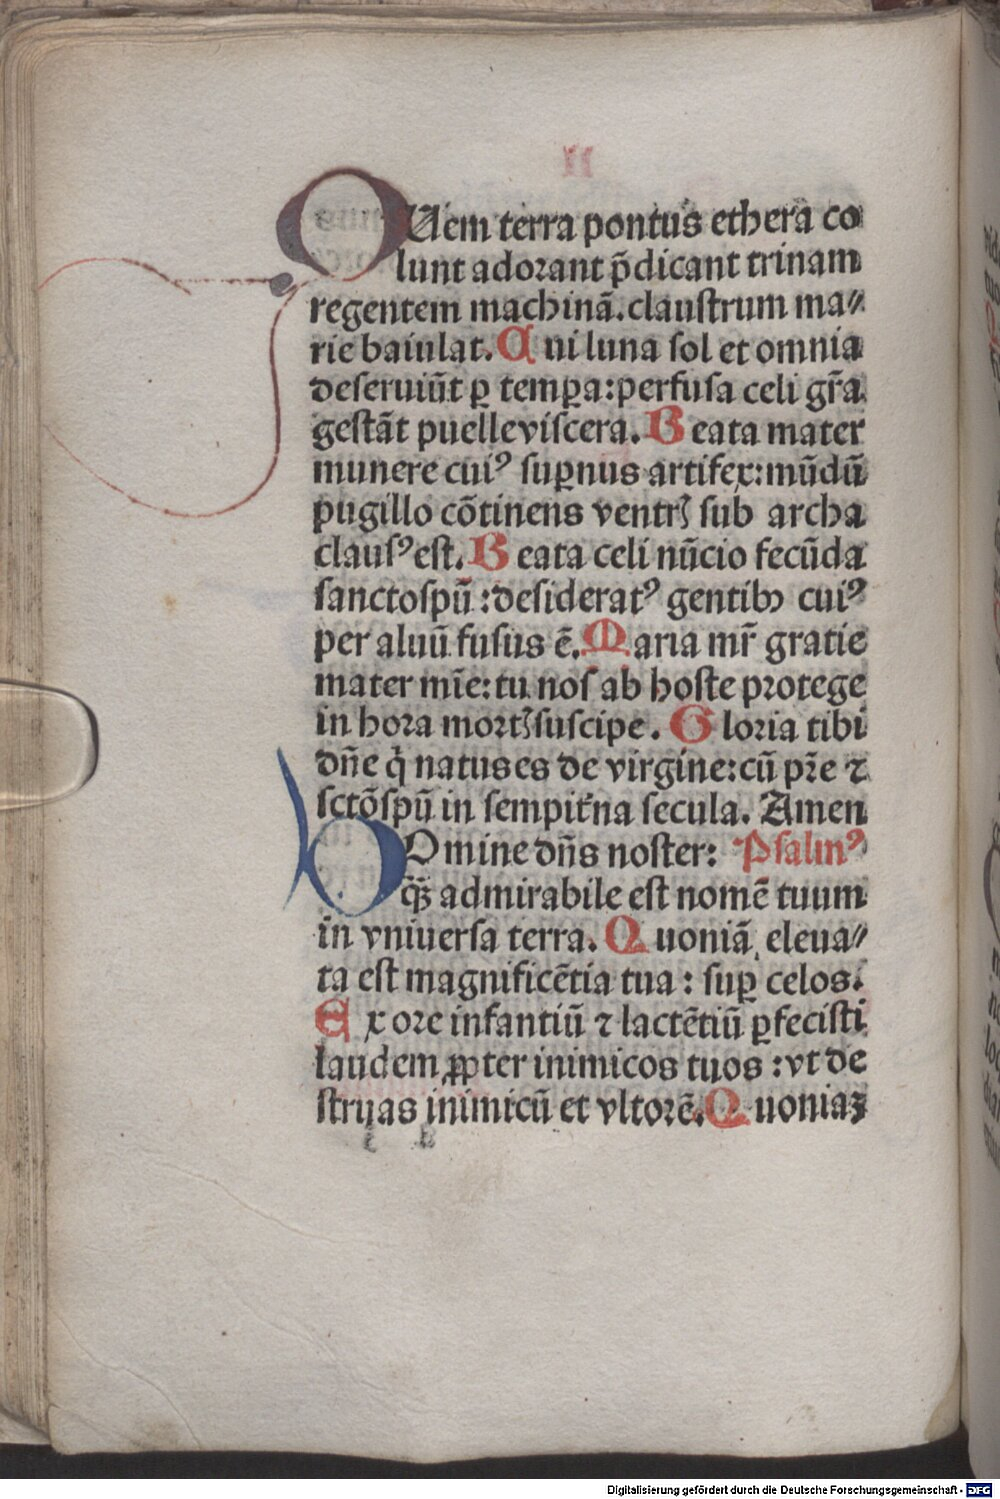 QUem terra pontus ethera co
lunt adorant p̄dicant trinam
regentem machinā. claustrum ma⸗
rie baiulat. Cui luna sol et omnia
deseruiūt ꝑ tempꝑa: perfusa celi gr̄a
gestāt puelle viscera. Beata mater
munere cuiꝰ suꝑnus artifex: mūdū
pugillo cōtinens ventrꝭ sub archa
clausꝰ est. Beata celi nūcio fecūda
sancto spū: desideratꝰ gentibꝫ cuiꝰ
per aluū fusus ē. Maria mr̄ gratie
mater mīe: tu nos ab hoste protege
in hora mortꝭ suscipe. Gloria tibi
dn̄e q̇ natus es de virgine: cū pr̄e ⁊
sctō spū in sempit̄na secula. Amen
DOmine dn̄s noster: Psalmꝰ
q̄ꝫ admirabile est nomē tuum
in vniuersa terra. Quoniā eleua⸗
ta est magnificētia tua: suꝑ celos.
Ex ore infantiū ⁊ lactētiū ꝑfecisti
laudem ꝓpter inimicos tuos: vt de
struas inimicū et vltorē. Quoniaꝫ
Digitalisierung gefördert durch die Deutsche Forschungsgemeinschaft - DFG